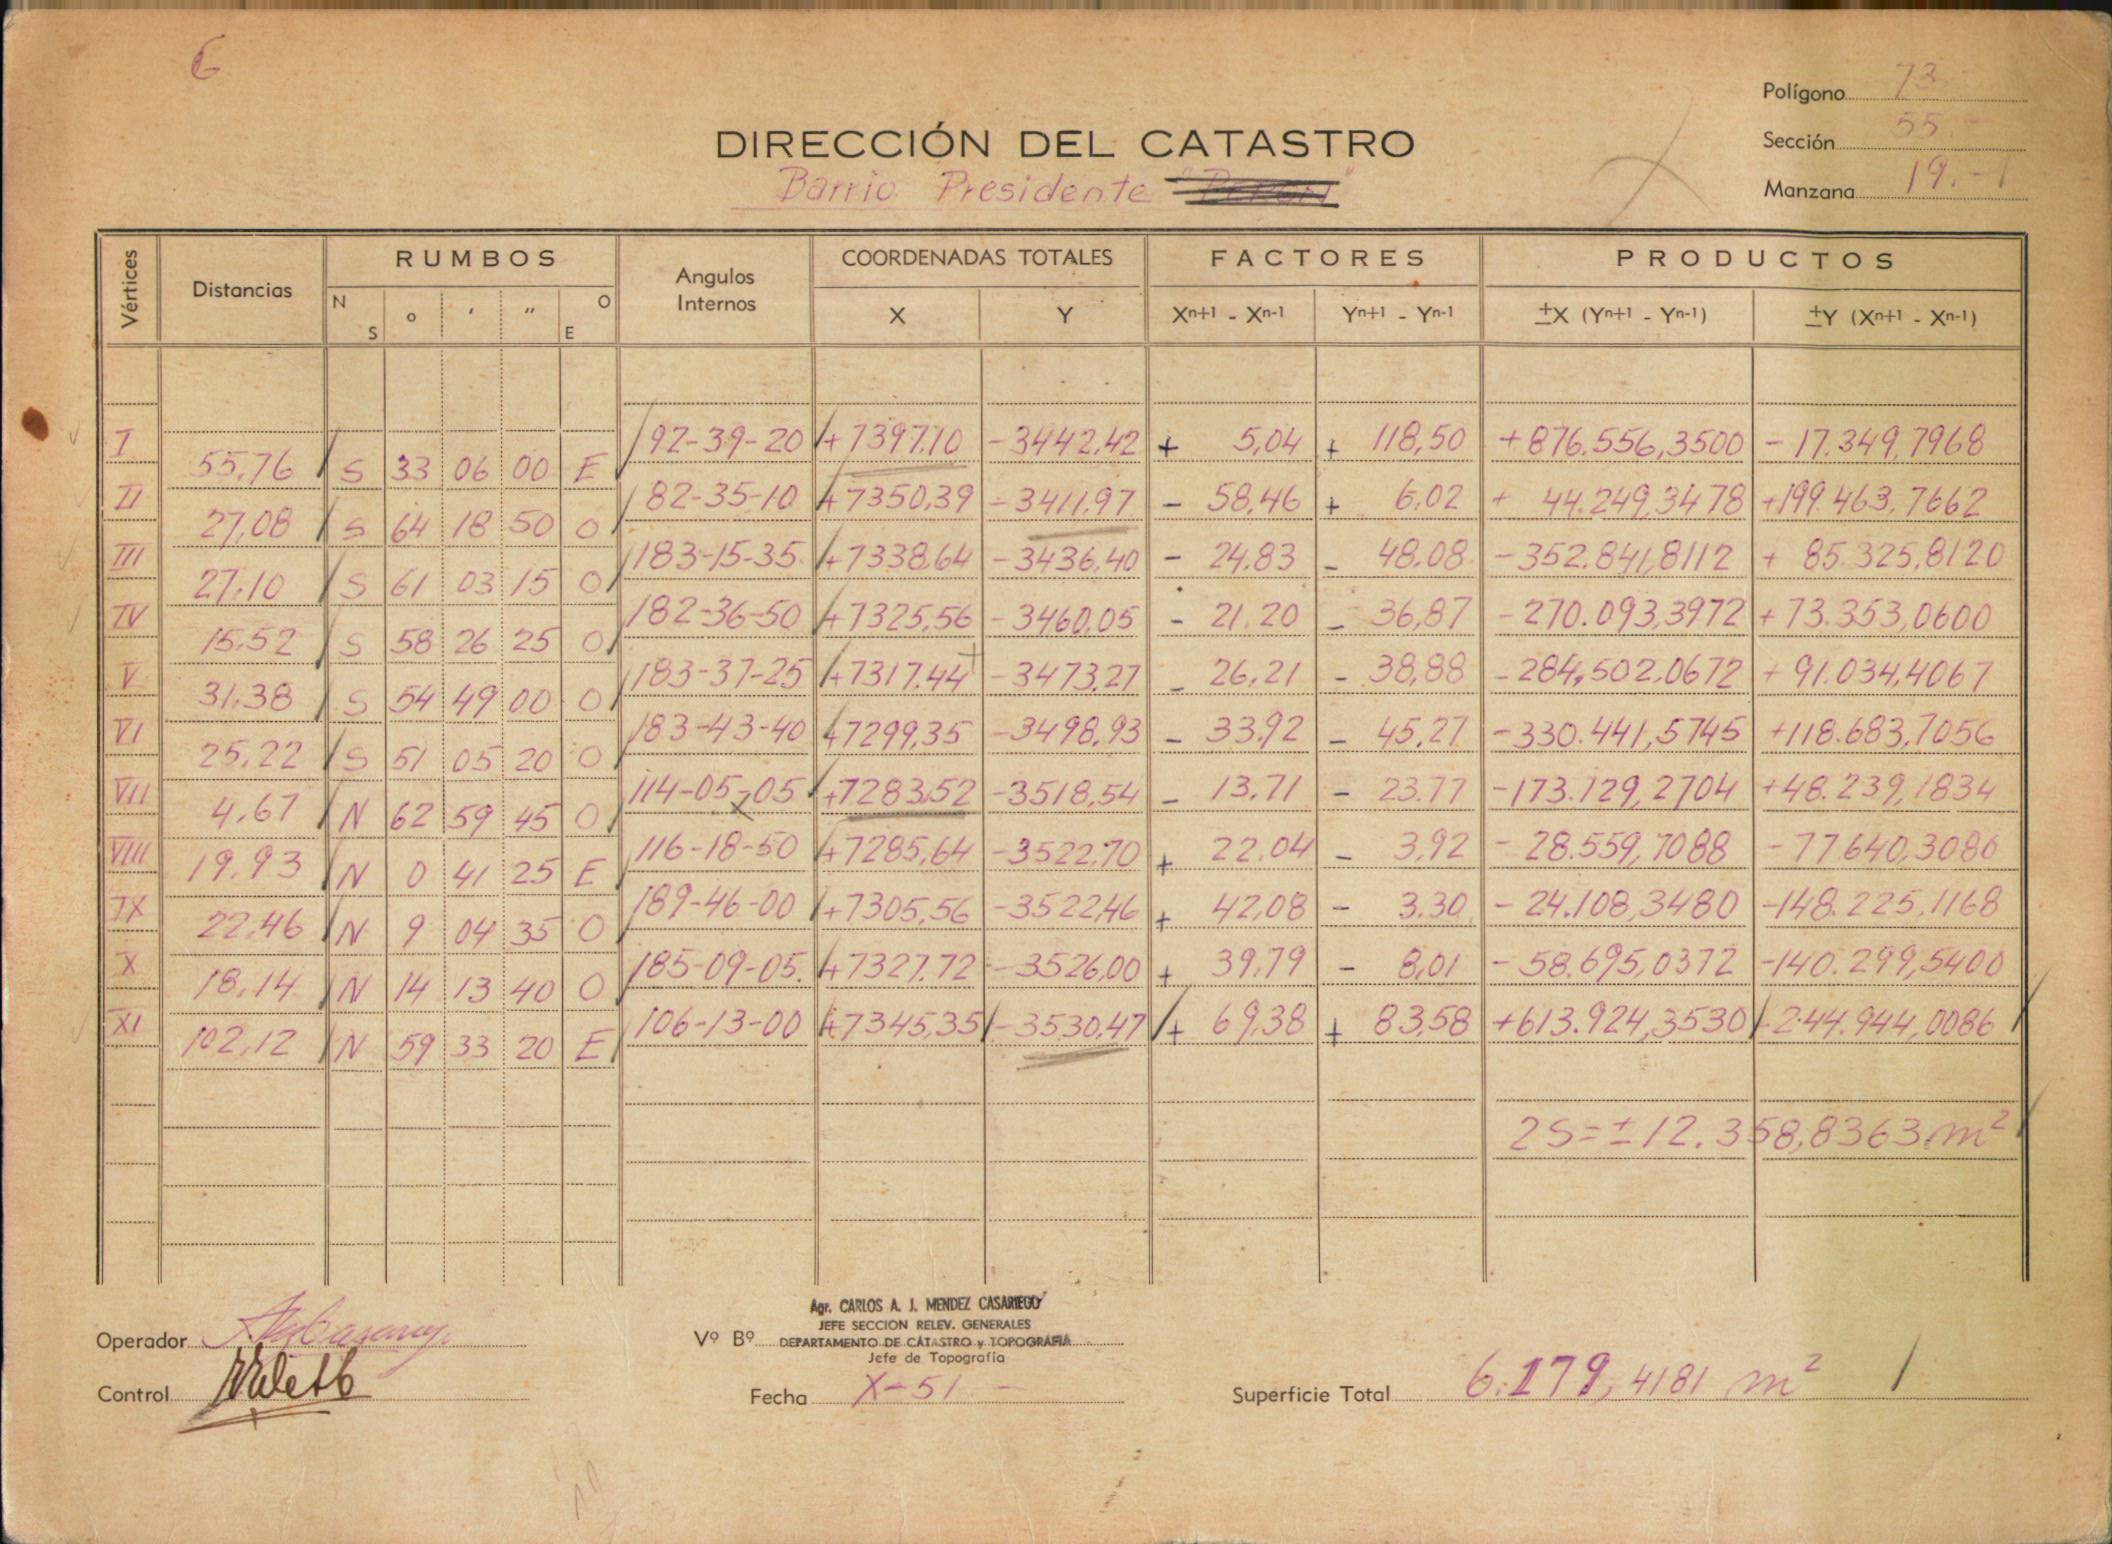 6
Polígono 73
Sección 55.-
Manzana 19.-
DIRECCIÓN DEL CATASTRO
Barrio Presidente "Perón"
Vértices Distancias RUMBOS Angulos Internos COORDENADAS TOTALES FACTORES PRODUCTOS
N S ° ' " O E X Y Xn+1 - Xn-1 Yn+1 - Yn-1 ±X (Yn+1 - Yn-1) ±Y (Xn+1 - Xn-1)
I 92-39-20 +7397,10 -3442,42 + 5,04 + 118,50 +876.556,3500 -17.349,7968
55,76 S 33 06 00 E
II 82-35-10 +7350,39 -3411,97 - 58,46 + 6,02 + 44.249,3478 +199.463,7662
27,08 S 64 18 50 O
III 183-15-35 +7338,64 -3436,40 - 24,83 - 48,08 -352.841,8112 + 85.325,8120
27,10 S 61 03 15 O
IV 182-36-50 +7325,56 -3460,05 - 21,20 - 36,87 -270.093,3972 + 73.353,0600
15,52 S 58 26 25 O
V 183-37-25 +7317,44 -3473,27 - 26,21 - 38,88 -284.502,0672 + 91.034,4067
31,38 S 54 49 00 O
VI 183-43-40 +7299,35 -3498,93 - 33,92 - 45,27 -330.441,5745 +118.683,7056
25,22 S 51 05 20 O
VII 114-05-05 +7283,52 -3518,54 - 13,71 - 23,77 -173.129,2704 +48.239,1834
4,67 N 62 59 45 O
VIII 116-18-50 +7285,64 -3522,70 + 22,04 - 3,92 - 28.559,7088 -77.640,3080
19,93 N 0 41 25 E
IX 189-46-00 +7305,56 -3522,46 + 42,08 - 3,30 - 24.108,3480 -148.225,1168
22,46 N 9 04 35 O
X 185-09-05 +7327,72 -3526,00 + 39,79 - 8,01 - 58.695,0372 -140.299,5400
18,14 N 14 13 40 O
XI 106-13-00 +7345,35 -3530,47 + 69,38 + 83,58 +613.924,3530 -244.944,0086
102,12 N 59 33 20 E
2S=±12.358,8363 m²
Agr. CARLOS A. J. MENDEZ CASARIEGO
JEFE SECCION RELEV. GENERALES
Operador Vº Bº DEPARTAMENTO DE CATASTRO y TOPOGRAFIA
Jefe de Topografía
Control Fecha X-51- Superficie Total 6.179,4181 m²